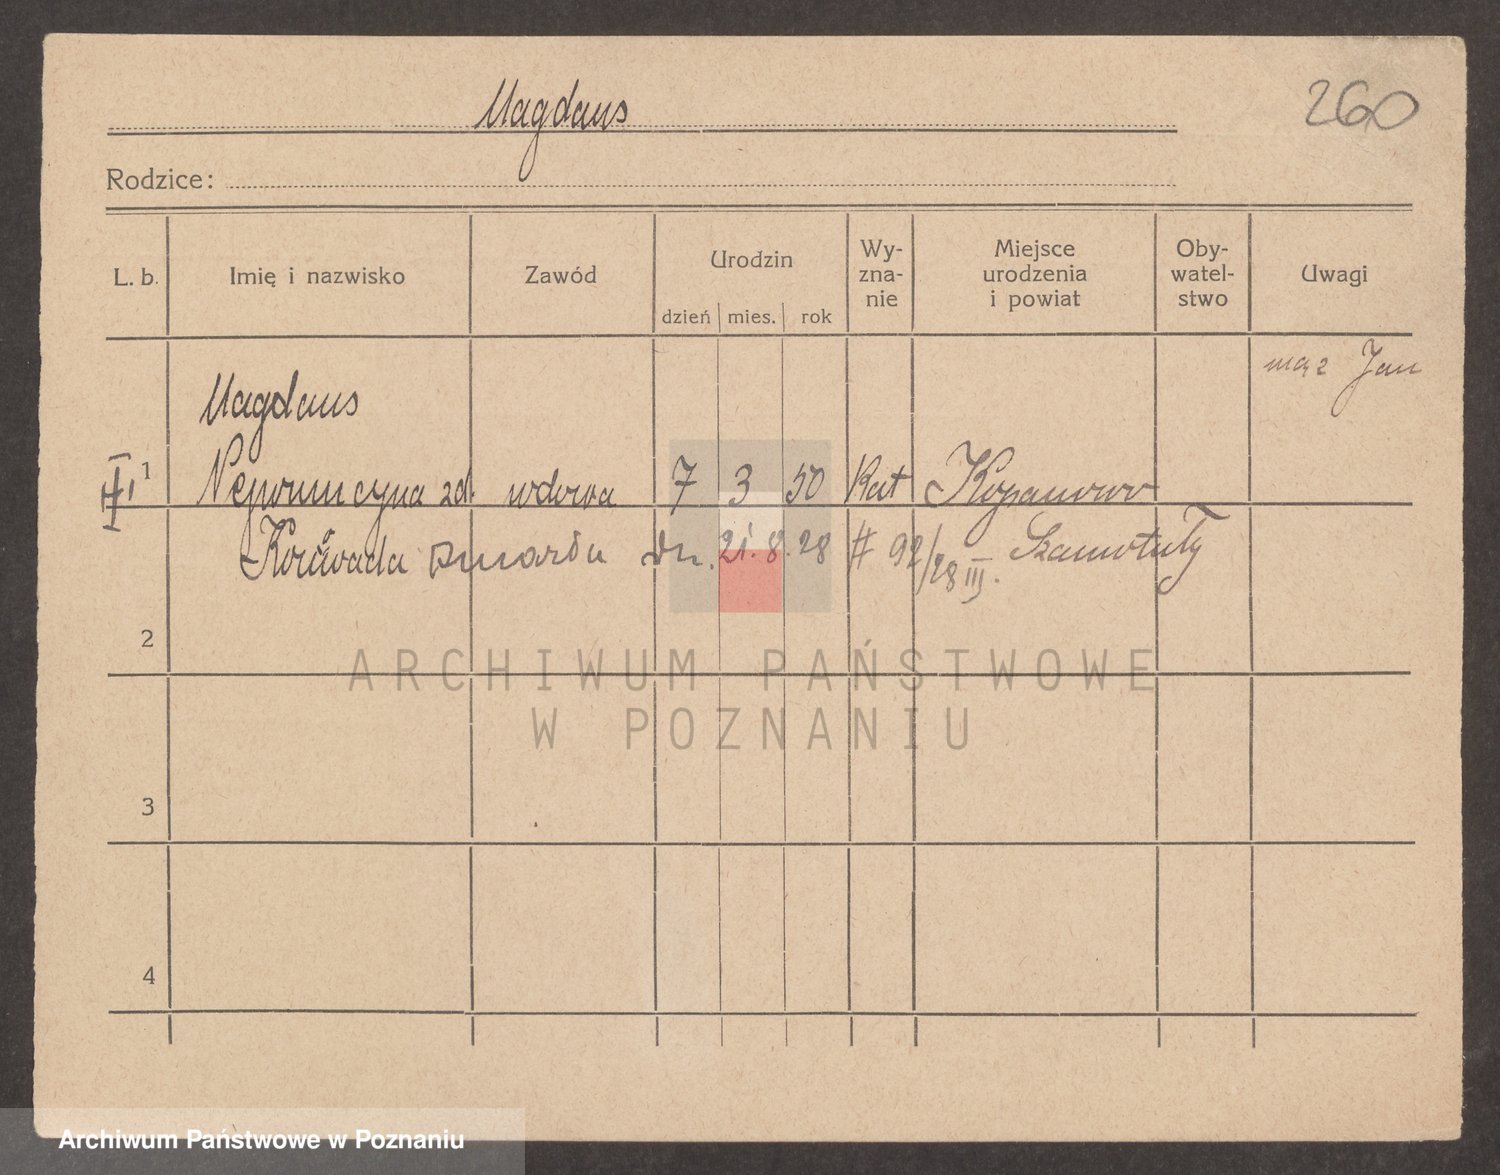 Magdans
260
Rodzice:
L. b.
Imię i nazwisko
Zawód
Urodzin
dzień mies. rok
Wy-
zna-
nie
Miejsce
urodzenia
i powiat
Oby-
watel-
stwo
Uwagi
mąż Jan
Magdans
1 Nepomucyna zd. wdowa 7 3 50 Kat Kopanowo
zmarła dn. 21. 8. 28 # 92/28 III. Szamotuły
2
3
4
ARCHIWUM PAŃSTWOWE
W POZNANIU
Archiwum Państwowe w Poznaniu